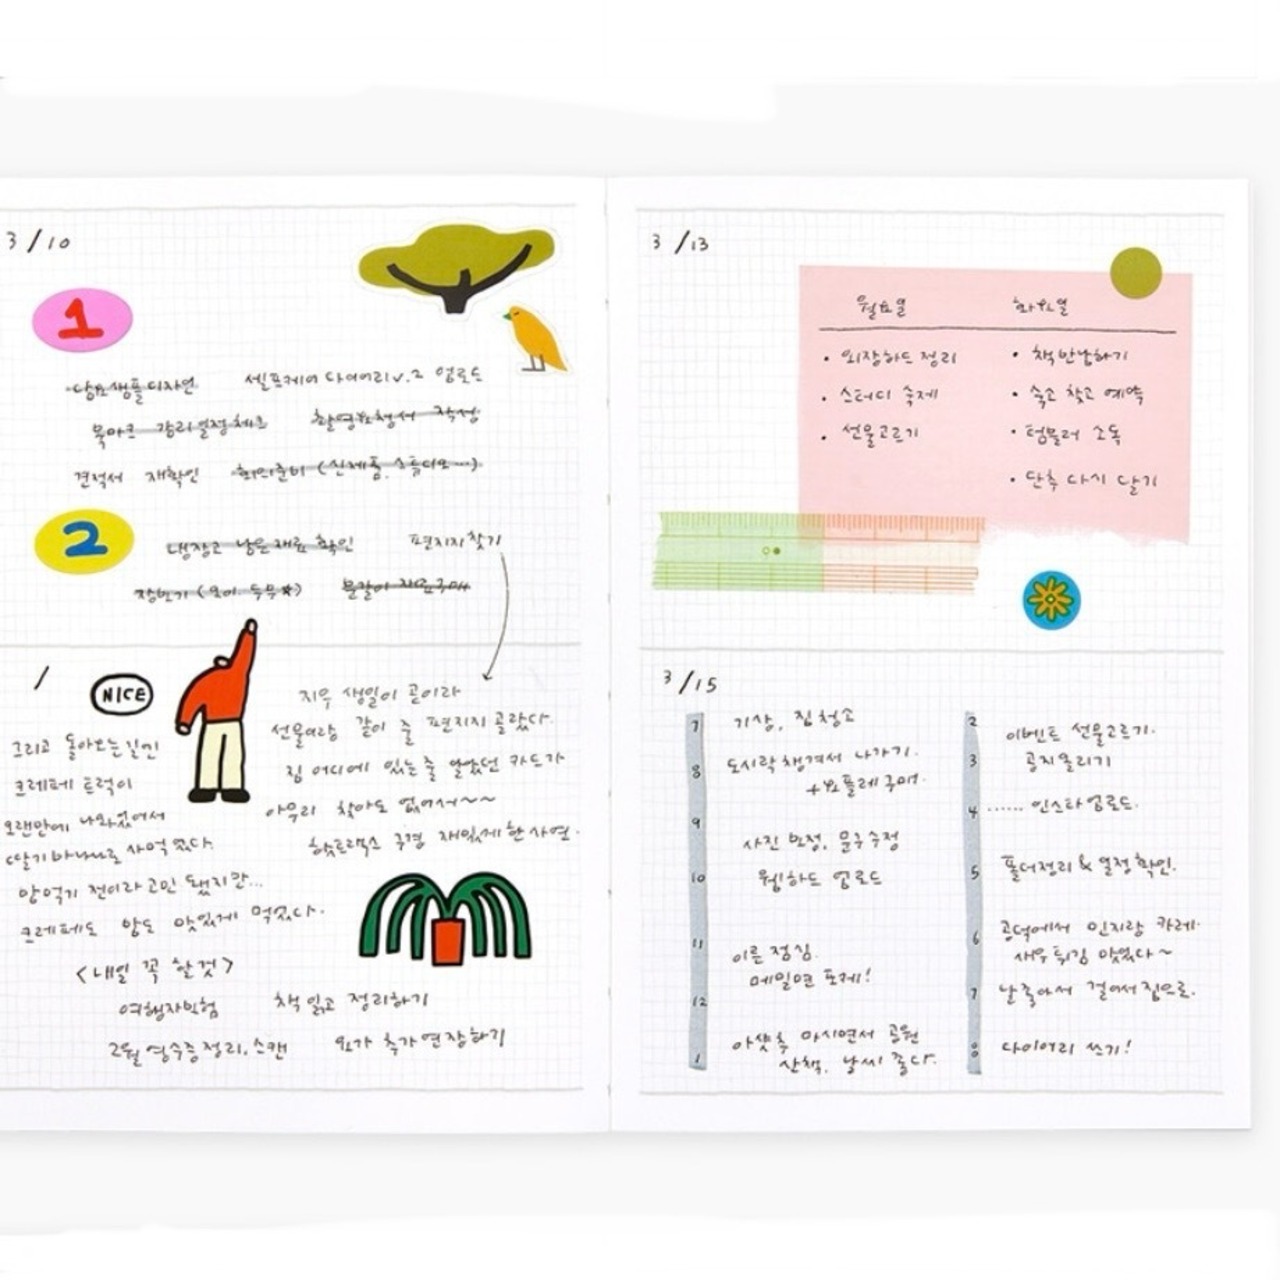 3/10
1
담요샘플디자인 셀프케어 다이어리 v.2 업로드
북마크 감리일정체크 촬영요청서 작성
견적서 재확인 회의준비 (신제품, 스튜디오...)
2
냉장고 남은재료 확인 편지지 찾기
장보기 (오이, 두부★) 분갈이 재료구매
/
NICE
지우 생일이 곧이라
선물이랑 같이 줄 편지지 골랐다.
집 어디에 있는 줄 알았던 카드가
아무리 찾아도 없어서~~
핫트랙스 구경 재밌게 한 사연.
그리고 돌아오는길엔
크레페 트럭이
오랜만에 나와있어서
딸기바나나로 사먹었다.
밥먹기 전이라 고민 됐지만...
크레페도 밥도 맛있게 먹었다.
<내일 꼭 할것>
여행자보험 책 읽고 정리하기
2월 영수증정리, 스캔 요가 추가연장하기
3/13
월요일 화요일
• 외장하드 정리
• 스터디 숙제
• 선물고르기
• 책반납하기
• 숙고 찾고 예약
• 텀블러 소독
• 단추 다시 달기
3/15
7 기상, 집청소
8 도시락 챙겨서 나가기.
+요플레구매.
9 사진 보정, 문구수정
10 웹하드 업로드
11 이른점심.
메밀면 포케!
12
1 아샷추 마시면서 공원
산책, 날씨 좋다.
2 이벤트 선물고르기.
3 공지올리기
4 ...... 인스타업로드.
5 폴더정리 & 일정확인.
6 공덕에서 민지랑 카레.
새우튀김 맛있다~
7 날 좋아서 걸어서 집으로.
8 다이어리 쓰기!